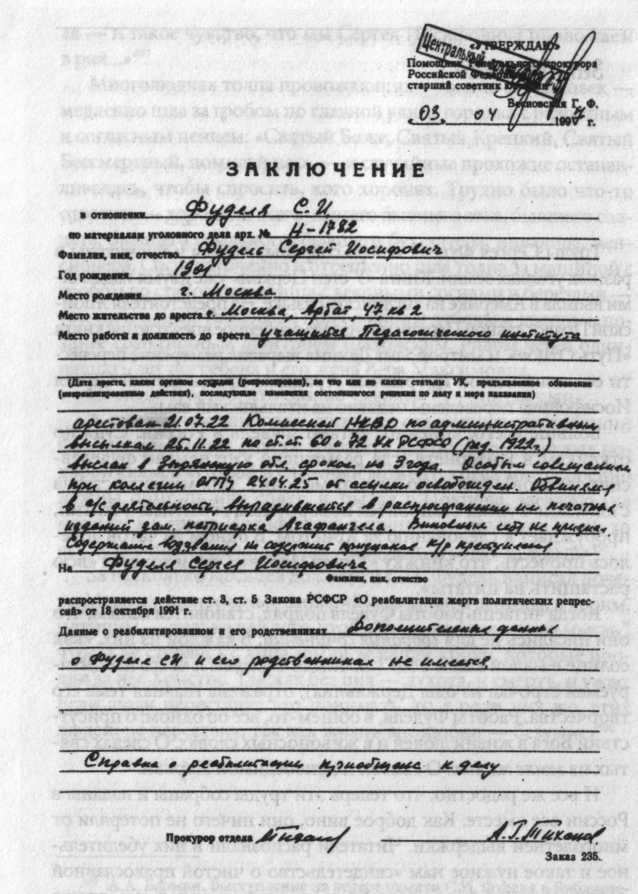 «УТВЕРЖДАЮ»
Центральный
Помощник Генерального прокурора
Российской Федерации
старший советник юстиции
Весновская Г. Ф.
«03» 04 1997 г.
ЗАКЛЮЧЕНИЕ
в отношении Фуделя С.И
по материалам уголовного дела арх. № Н-1782
Фамилия, имя, отчество Фудель Сергей Иосифович
Год рождения 1901
Место рождения г. Москва
Место жительства до ареста г. Москва, Арбат, 47 кв 2
Место работы и должность до ареста учащийся Педагогического института
(Дата ареста, каким органом осужден (репрессирован), за что или по каким статьям УК, предъявленное обвинение
(инкриминированные действия), последующие изменения состоявшегося решения по делу и мера наказания)
арестован 21.07.22 Комиссией НКВД по административным
высылкам 25.11.22 по ст.ст. 60 и 72 УК РСФСР (ред. 1922г.)
выслан в Зырянскую обл. сроком на 3 года. Особым совещанием
при коллегии ОГПУ 24.04.25 от ссылки освобожден. Обвинялся
в а/с деятельности, выразившейся в распространении им печатных
изданий зам. патриарха Агафангела. Виновным себя не признал.
Содержание воззвания не содержит признаков к/р преступления
На Фуделя Сергея Иосифовича
Фамилия, имя, отчество
распространяется действие ст. 3, ст. 5 Закона РСФСР «О реабилитации жертв политических репрес-
сий» от 18 октября 1991 г.
Данные о реабилитированном и его родственниках Дополнительных данных
о Фуделе СИ и его родственниках не имеется
Справка о реабилитации приобщена к делу
Прокурор отдела
Заказ 235.